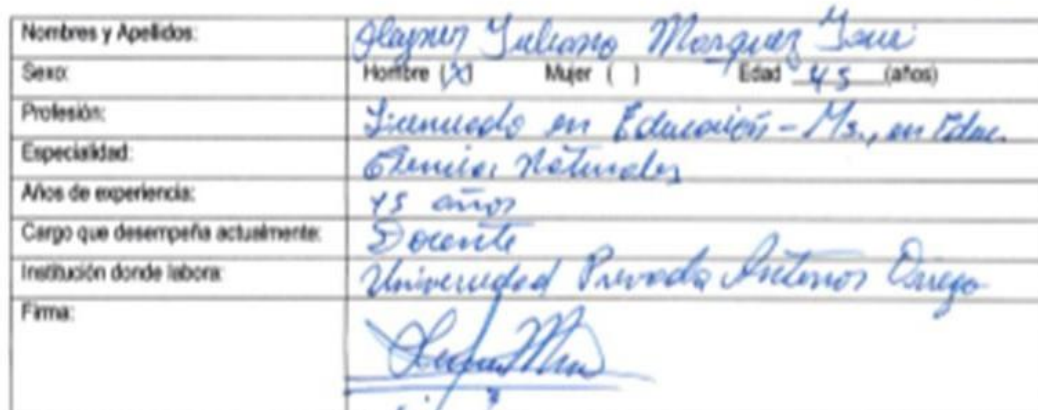 Nombres y Apellidos: Juliano Marquez
Sexo: Hombre (X) Mujer ( ) Edad 45 (años)
Profesión: Licenciado en Educación - Ms., en Educ.
Especialidad: Ciencias Naturales
Años de experiencia: años
Cargo que desempeña actualmente: Docente
Institución donde labora: Universidad Privada Antenor Orrego
Firma: